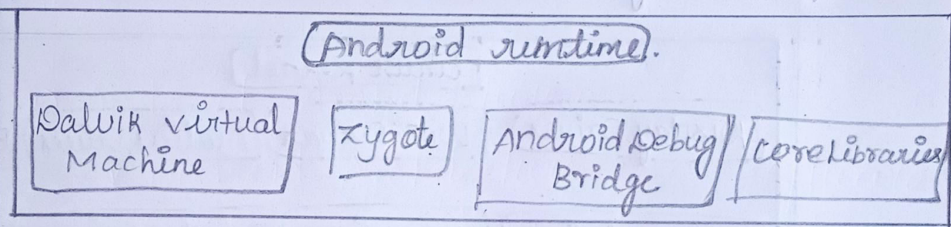 Android runtime.
Dalvik virtual
Machine
zygote
Android Debug
Bridge
Core Libraries